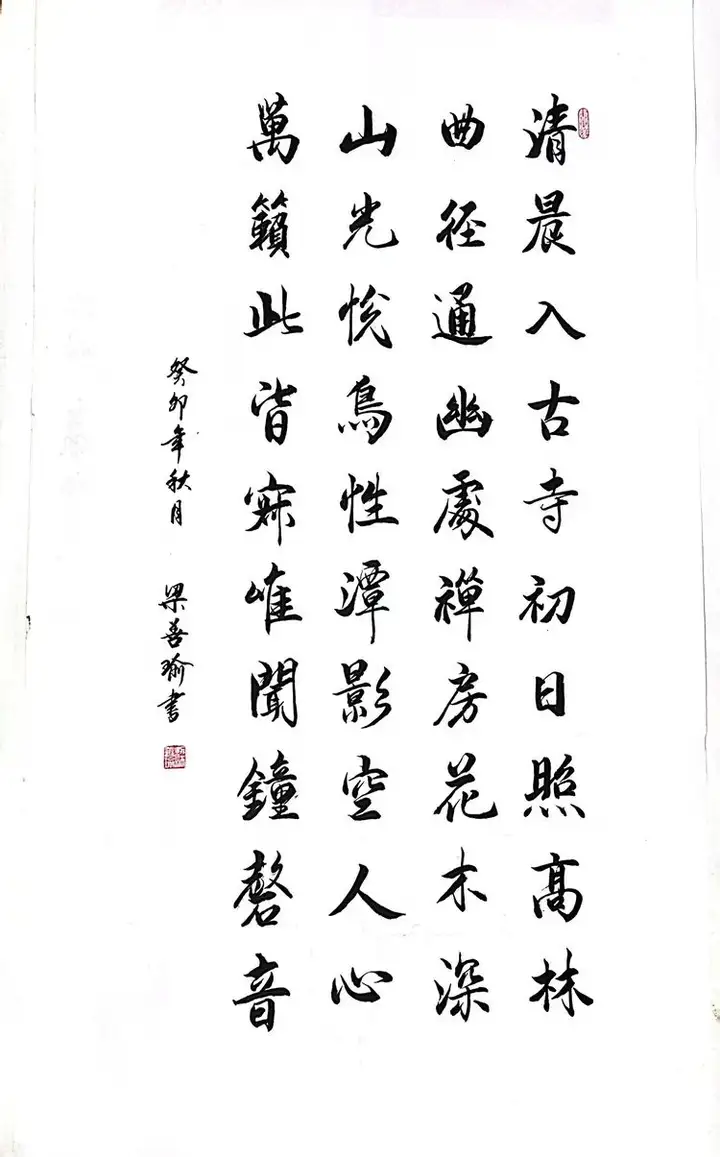 清晨入古寺初日照高林
曲径通幽處禪房花木深
山光悅鳥性潭影空人心
萬籟此皆寂唯聞鐘磬音
癸卯年秋月 梁善瑜書